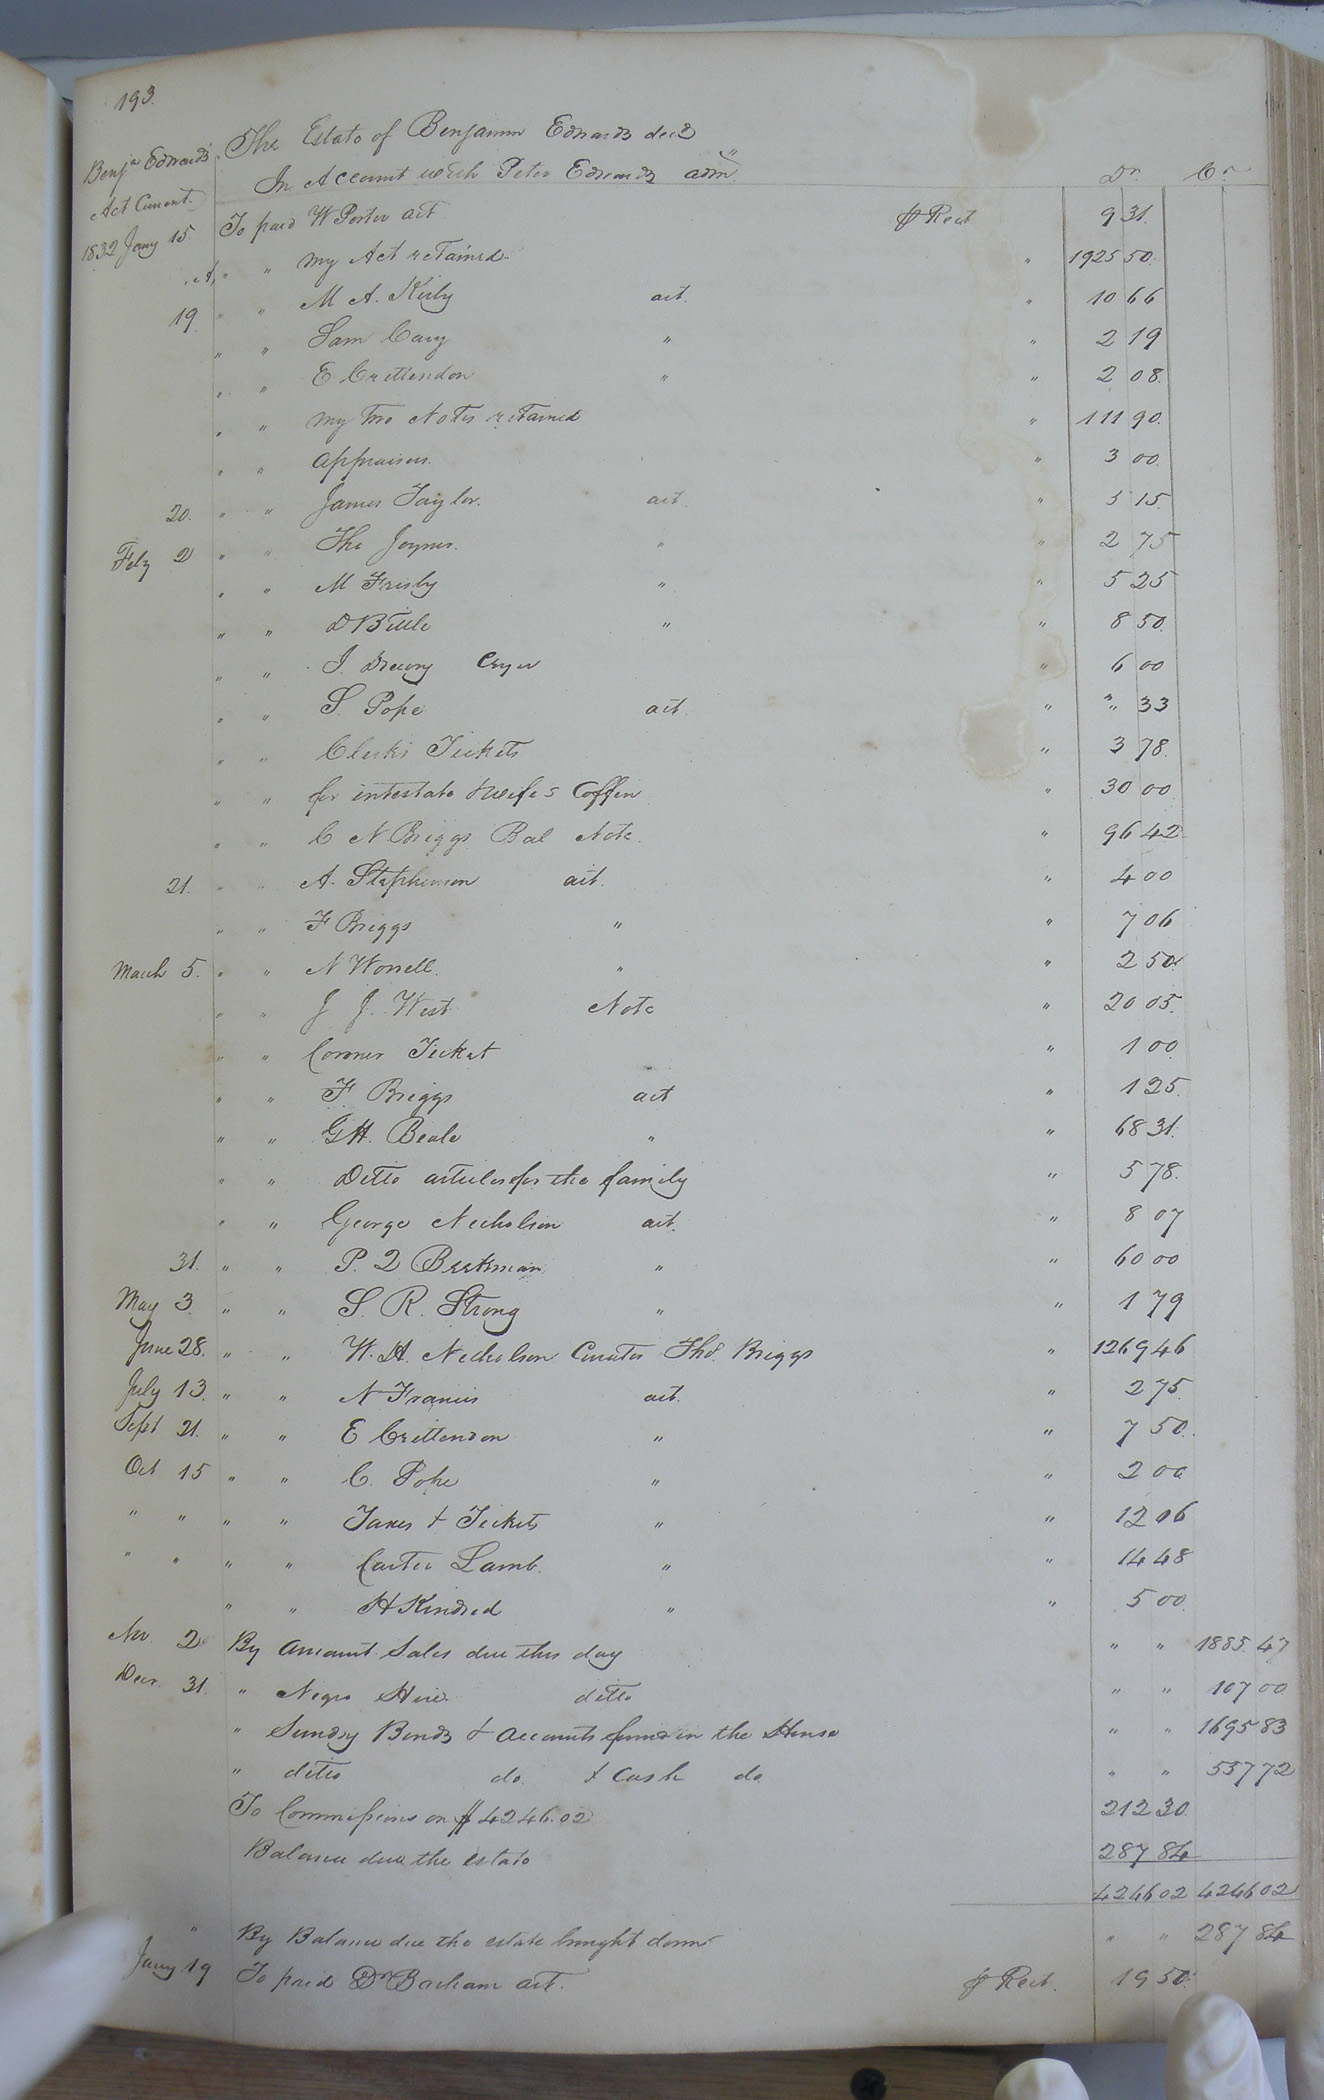 193.
The Estate of Benjamin Edwards decd
Benja Edwards' In Account with Peter Edwards adm.
Act Current. Dr. Cr.
1832 Jany 15. To paid W Porter act ⅌ Rect 9 31.
" " my Act retained " 1925 50.
19. " " M A. Kirby act. " 10 66
" " Sam Cary " " 2 19
" " E Crittendon " " 2 08.
" " my two Notes retained " 111 90.
" " appraisers. " 3 00
20. " " James Taylor. act. " 5 15.
Feby 2 " " Tho Joyner. " " 2 75
" " M Frisby " " 5 25
" " D Bittle " " 8 50.
" " J. Drewry Cryer " 6 00
" " S. Pope act " " 33
" " Clerks Tickets " 3 78.
" " for intestate & wife's Coffin " 30 00
" " C N Briggs Bal Note. " 96 42
21. " " A. Stephenson act. " 4 00
" " F Briggs " " 7 06
March 5. " " N Worrell. " " 2 50
" " J J. West Note " 20 05.
" " Corones Ticket " 1 00
" " F Briggs act " 1 25.
" " G H. Beale " " 68 31.
" " Ditto articles for the family " 5 78.
" " George Nicholson act. " 8 07
31. " " P. D Beekman. " " 60 00
May 3. " " S. R. Strong " " 1 79
June 28. " " W. H. Nicholson Curator Tho. Briggs " 1269 46
July 13. " " N Francis act. " 2 75.
Sept 21. " " E Crittendon " " 7 50.
Oct 15 " " C. Pope " " 2 00
" " " " Taxes & Tickets " " 12 06
" " " " Carter Lamb. " " 14 48
" " H Kindred " " 5 00
Nov 2 By amount Sales due this day " " 1885. 47
Decr. 31. " Negro Hire ditto " " 107 00
" Sundry Bonds & accounts found in the House " " 1695 83
" ditto do. & Cash do " " 557 72
To Commissions on $4246.02 212 30.
Balance due the estate 287 84
4246 02 4246 02
" By Balance due the estate brought down " " 287 84
Jany 19 To paid Dr Barham act. ⅌ Rect. 19 50.